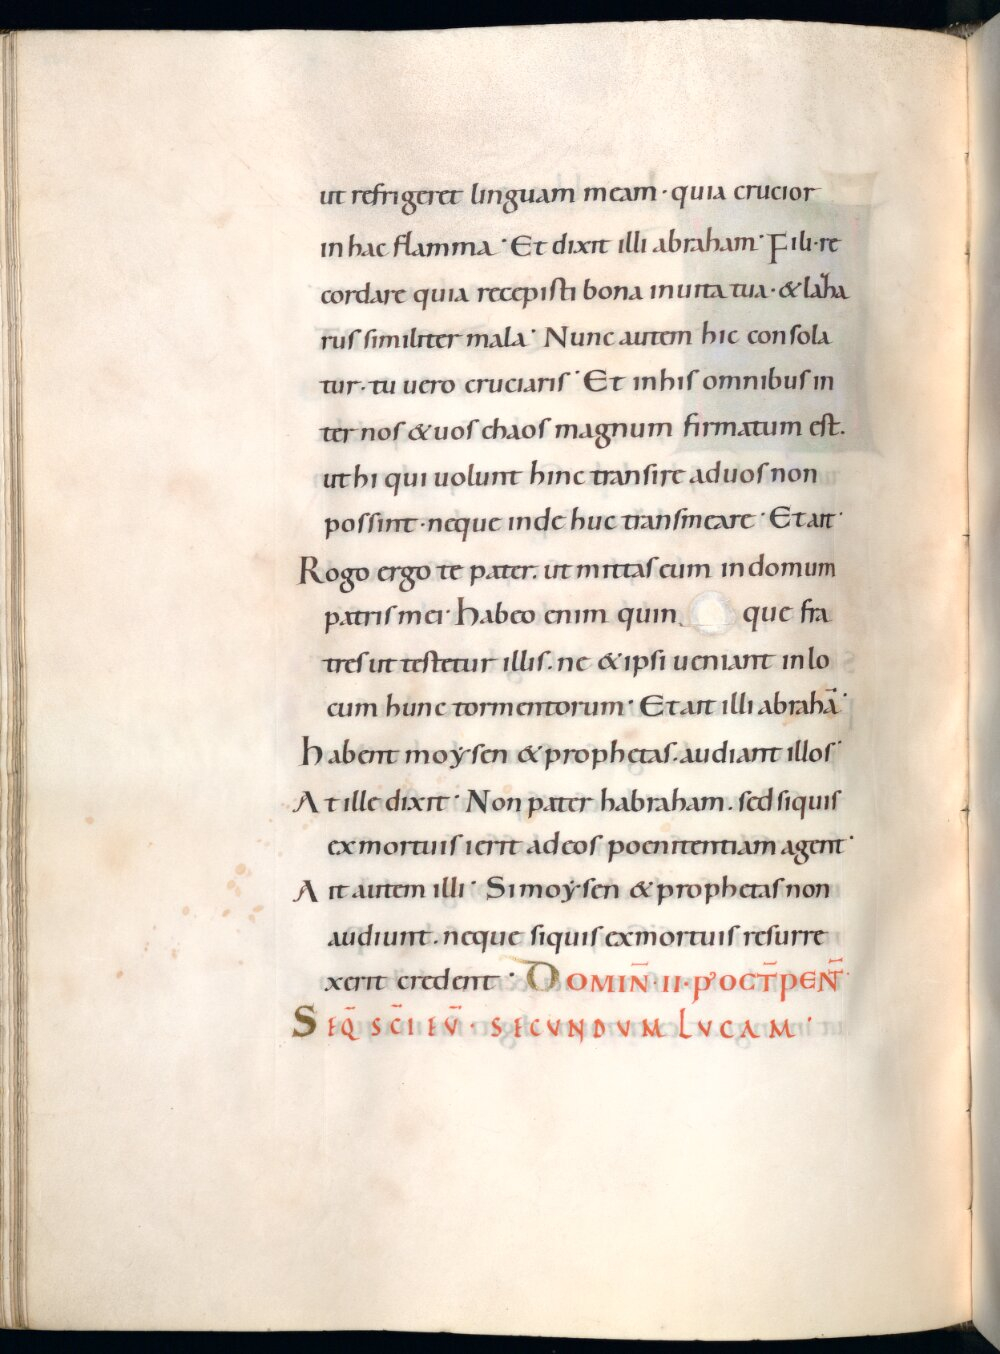 ut refrigeret linguam meam · quia crucior
in hac flamma · Et dixit illi abraham · Fili · re
cordare quia recepisti bona in uita tua · & laha
rus similiter mala · Nunc autem hic consola
tur · tu uero cruciaris · Et in his omnibus in
ter nos & uos chaos magnum firmatum est.
ut hi qui uolunt hinc transire ad uos non
possint · neque inde huc transmeare · Et ait ·
Rogo ergo te pater. ut mittas eum in domum
patris mei · habeo enim quin que fra
tres ut testetur illis. ne & ipsi ueniant in lo
cum hunc tormentorum · Et ait illi abrahā ·
habent moẏsen & prophetas. audiant illos ·
At ille dixit · Non pater habraham. sed siquis
ex mortuis ierit ad eos poenitentiam agent ·
Ait autem illi · Si moẏsen & prophetas non
audiunt. neque siquis ex mortuis resurre
xerit credent · DOMIN̄ · II · P' OCT̄ PEN̄T ·
SEQ̄ SC̄I EŪ · SECUNDUM LUCAM ·